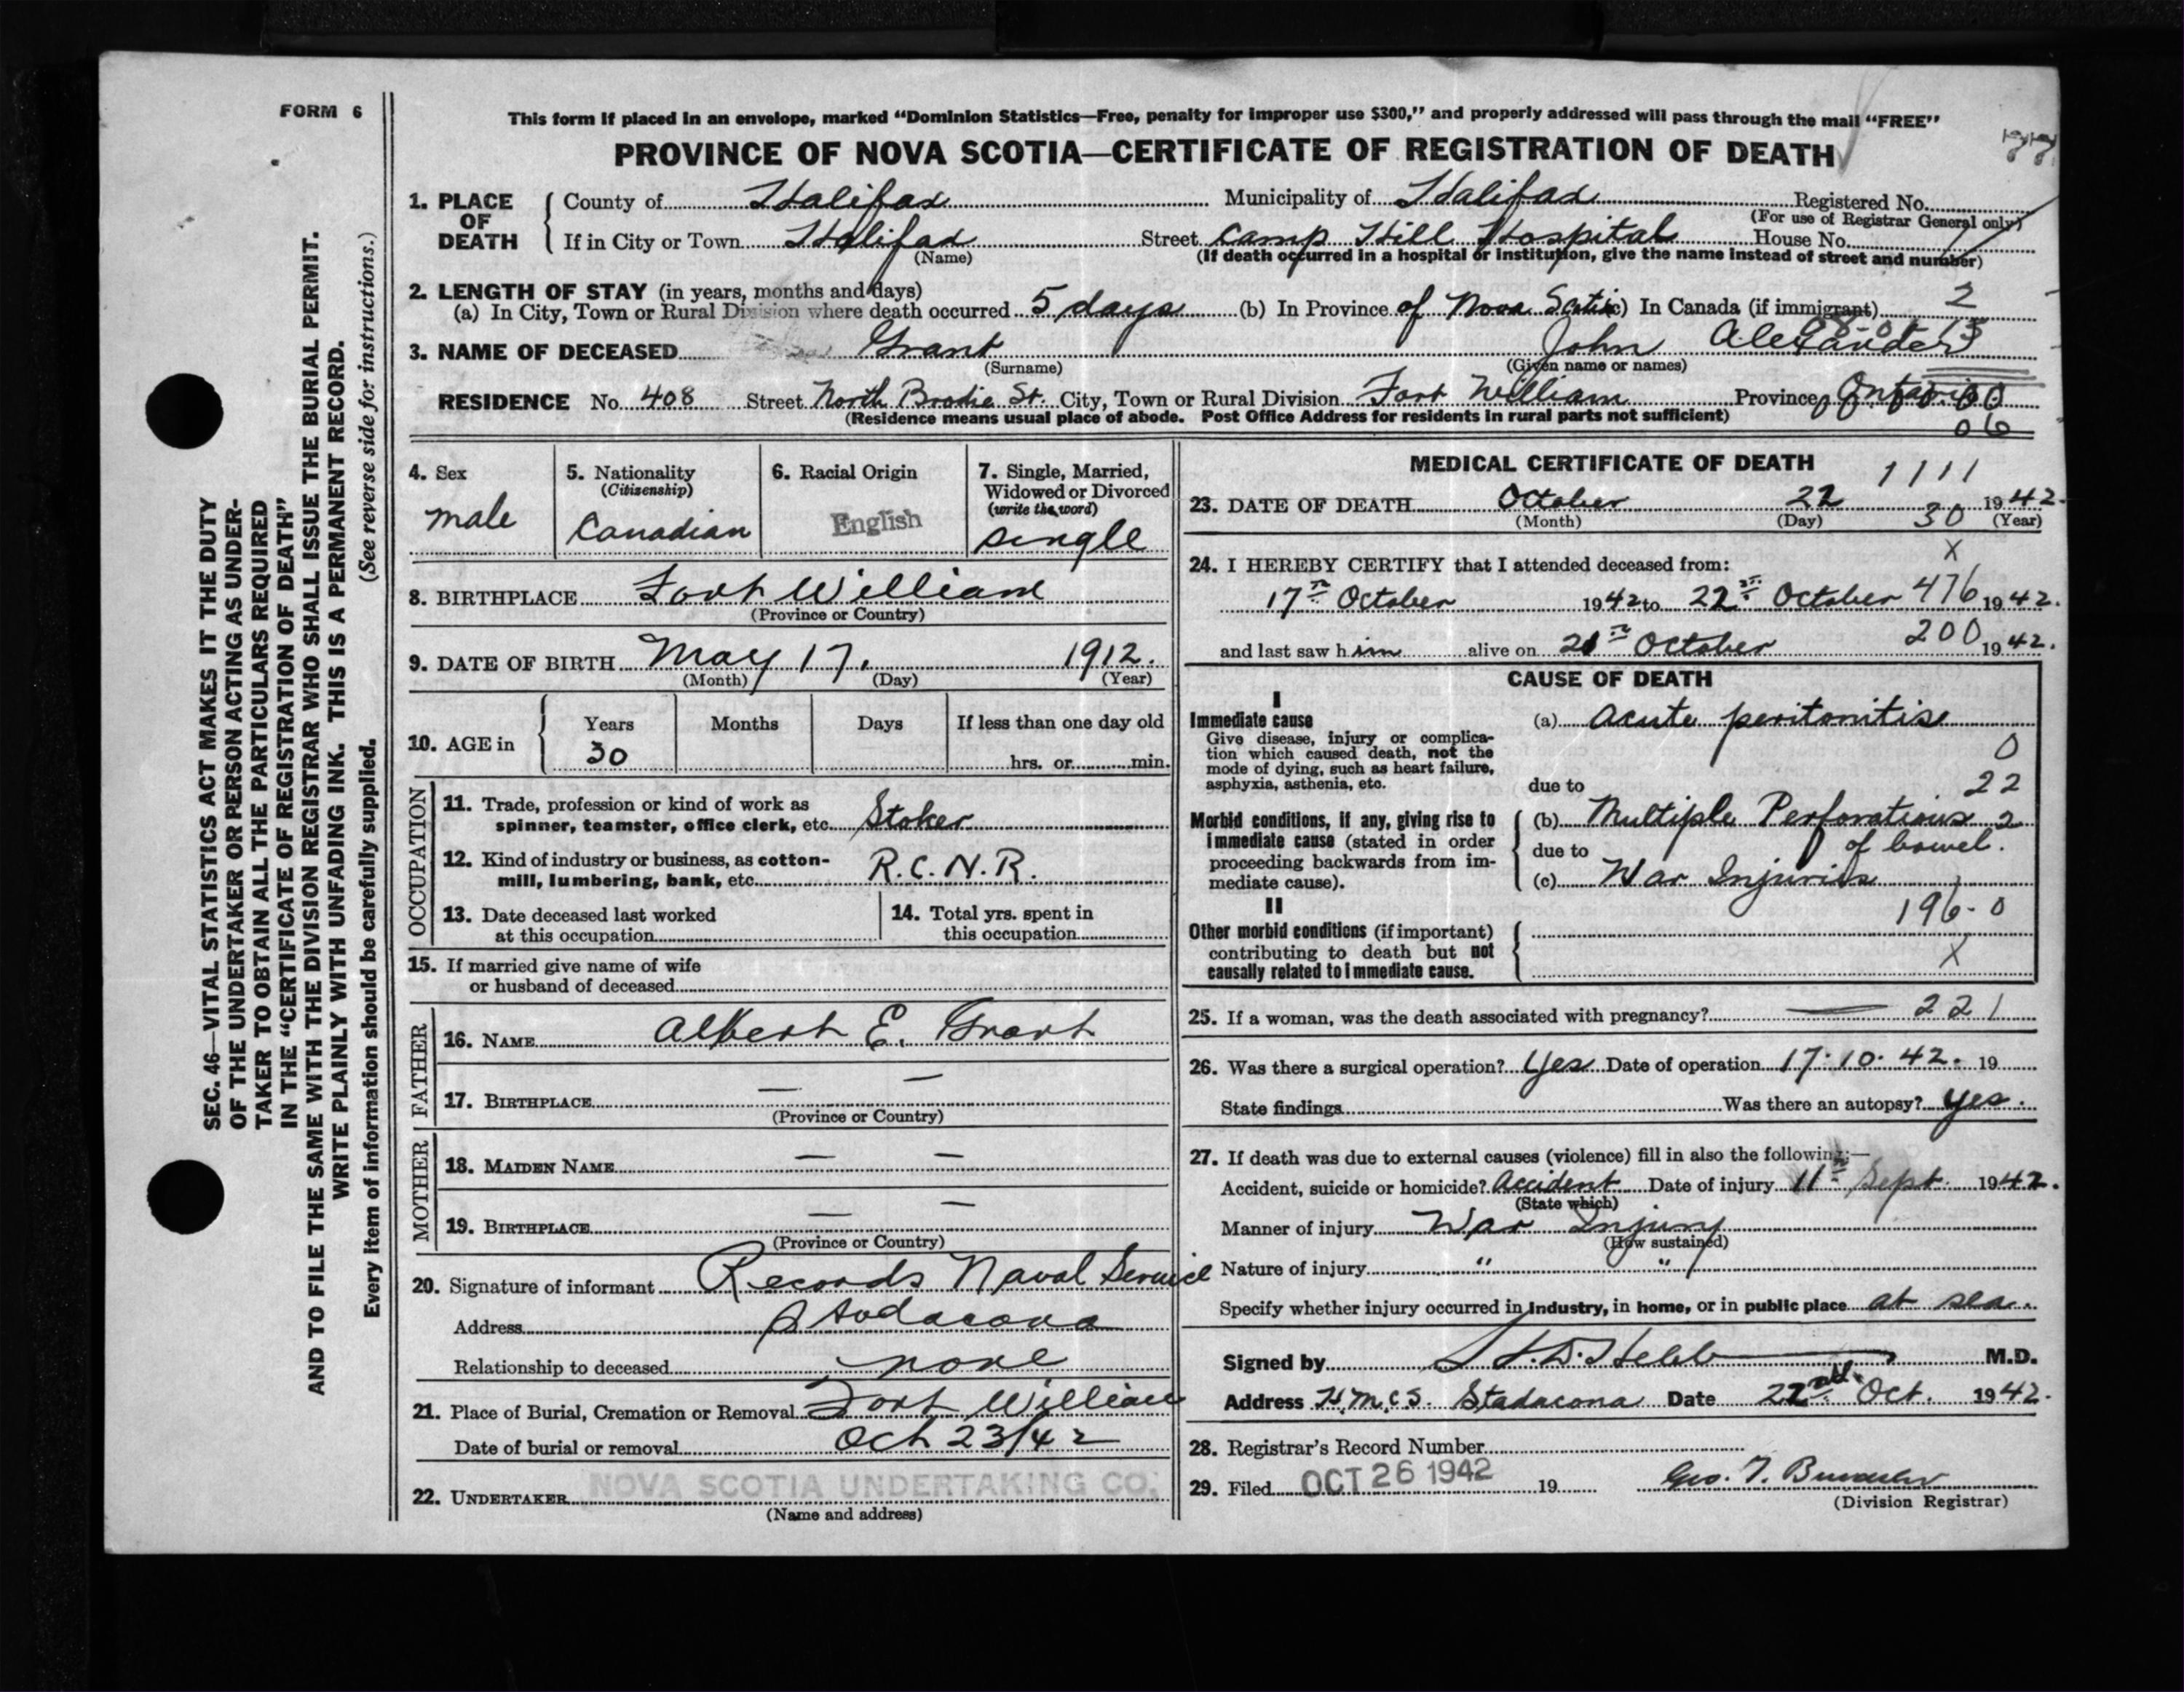 FORM 6
This form if placed in an envelope, marked "Dominion Statistics—Free, penalty for improper use $300," and properly addressed will pass through the mail "FREE"
PROVINCE OF NOVA SCOTIA—CERTIFICATE OF REGISTRATION OF DEATH
1. PLACE OF DEATH
County of Halifax Municipality of Halifax Registered No.
(For use of Registrar General only)
If in City or Town Halifax Street Camp Hill Hospital House No.
(Name) (If death occurred in a hospital or institution, give the name instead of street and number)
2. LENGTH OF STAY (in years, months and days)
(a) In City, Town or Rural Division where death occurred 5 days (b) In Province of Nova Scotia (c) In Canada (if immigrant) 2
3. NAME OF DECEASED Grant John Alexander
(Surname) (Given name or names)
RESIDENCE No. 408 Street North Brodie St. City, Town or Rural Division Fort William Province Ontario
(Residence means usual place of abode. Post Office Address for residents in rural parts not sufficient)
06
SEC. 46—VITAL STATISTICS ACT MAKES IT THE DUTY
OF THE UNDERTAKER OR PERSON ACTING AS UNDER-
TAKER TO OBTAIN ALL THE PARTICULARS REQUIRED
IN THE "CERTIFICATE OF REGISTRATION OF DEATH"
AND TO FILE THE SAME WITH THE DIVISION REGISTRAR WHO SHALL ISSUE THE BURIAL PERMIT.
WRITE PLAINLY WITH UNFADING INK. THIS IS A PERMANENT RECORD.
Every item of information should be carefully supplied. (See reverse side for instructions.)
4. Sex
male
5. Nationality
(Citizenship)
Canadian
6. Racial Origin
English
7. Single, Married,
Widowed or Divorced
(write the word)
single
8. BIRTHPLACE Fort William
(Province or Country)
9. DATE OF BIRTH May 17. 1912.
(Month) (Day) (Year)
10. AGE in
Years Months Days If less than one day old
30 hrs. or min.
OCCUPATION
11. Trade, profession or kind of work as
spinner, teamster, office clerk, etc. Stoker
12. Kind of industry or business, as cotton-
mill, lumbering, bank, etc. R.C.N.R.
13. Date deceased last worked
at this occupation
14. Total yrs. spent in
this occupation
15. If married give name of wife
or husband of deceased
FATHER
16. NAME Albert E. Grant
17. BIRTHPLACE — —
(Province or Country)
MOTHER
18. MAIDEN NAME — —
19. BIRTHPLACE — —
(Province or Country)
20. Signature of informant Records Naval Service
Address Stadacona
Relationship to deceased none
21. Place of Burial, Cremation or Removal Fort William
Date of burial or removal Oct 23/42
22. UNDERTAKER NOVA SCOTIA UNDERTAKING CO.
(Name and address)
MEDICAL CERTIFICATE OF DEATH
1111
23. DATE OF DEATH October 22 1942.
(Month) (Day) 30 (Year)
X
24. I HEREBY CERTIFY that I attended deceased from:
17th October 1942 to 22nd October 476 1942.
and last saw him alive on 21st October 200 1942.
CAUSE OF DEATH
I
Immediate cause
Give disease, injury or complica-
tion which caused death, not the
mode of dying, such as heart failure,
asphyxia, asthenia, etc.
(a) Acute peritonitis
0
due to 22
Morbid conditions, if any, giving rise to
immediate cause (stated in order
proceeding backwards from im-
mediate cause).
(b) Multiple Perforations 2
due to of bowel.
(c) War Injuries
II
196-0
Other morbid conditions (if important)
contributing to death but not
causally related to immediate cause.
X
25. If a woman, was the death associated with pregnancy? — 221
26. Was there a surgical operation? Yes Date of operation 17.10.42. 19
State findings Was there an autopsy? Yes.
27. If death was due to external causes (violence) fill in also the following:—
Accident, suicide or homicide? Accident Date of injury 11th Sept. 1942.
(State which)
Manner of injury War Injury
(How sustained)
Nature of injury " "
Specify whether injury occurred in industry, in home, or in public place at sea.
Signed by H.D. Hebb M.D.
Address H.M.C.S. Stadacona Date 22nd Oct. 1942.
28. Registrar's Record Number
29. Filed OCT 26 1942 19 Geo. T.
(Division Registrar)